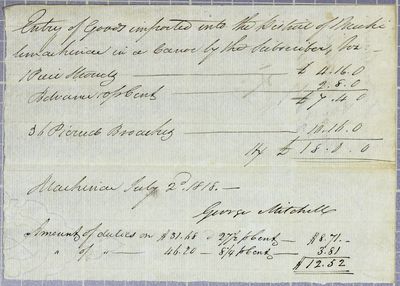 Entry of Goods imported into the District of Michi
limackinac in a Canoe by the Subscriber, Viz:—
1 Pair £ 4.16.0
Advance 2.8.0
£ 7.4.0
36 Pierced Broaches 10.16.0
£ 18.0.0
Mackinac July 2d. 1818.—
George Mitchell
Amount of duties on $31.68 27½ pCent — $8.71.—
" of " — 46.20 — 8¼ pCent — 3.81
$12.52